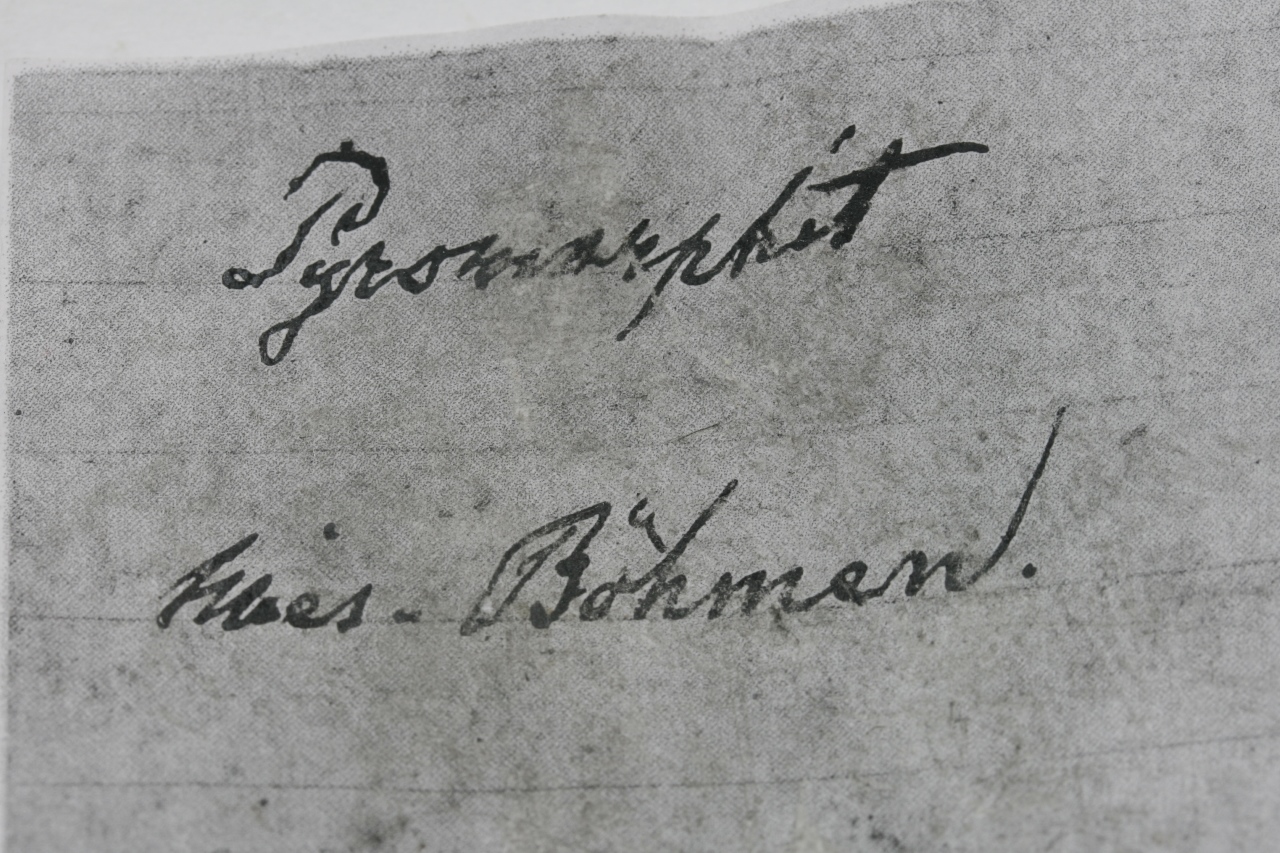 Pyromorphit
Mies - Böhmen.